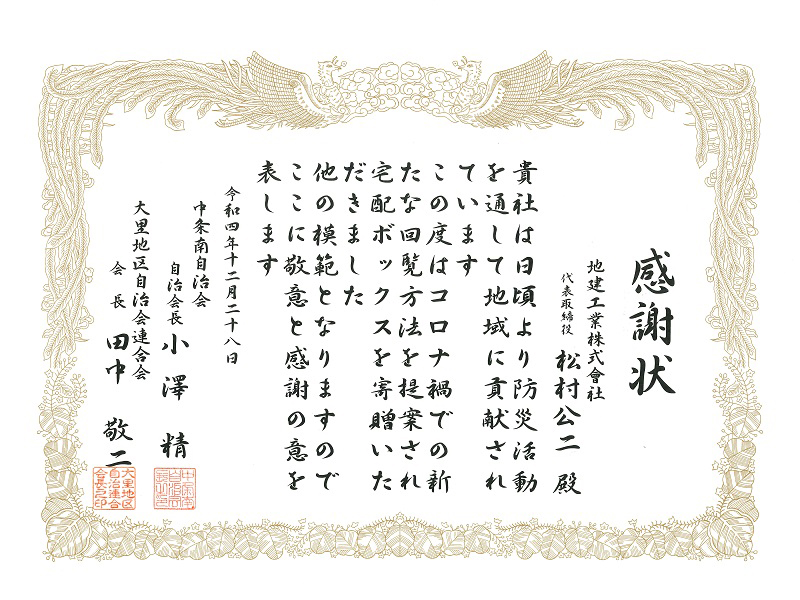 感謝状
地建工業株式會社
代表取締役 松村公二 殿
貴社は日頃より防災活動
を通して地域に貢献され
ています
この度はコロナ禍での新
たな回覧方法を提案され
宅配ボックスを寄贈いた
だきました
他の模範となりますので
ここに敬意と感謝の意を
表します
令和四年十二月二十八日
中条南自治会
自治会長 小澤 精
大里地区自治会連合会
会長 田中 敬二
大里地区
自治連合
会長之印